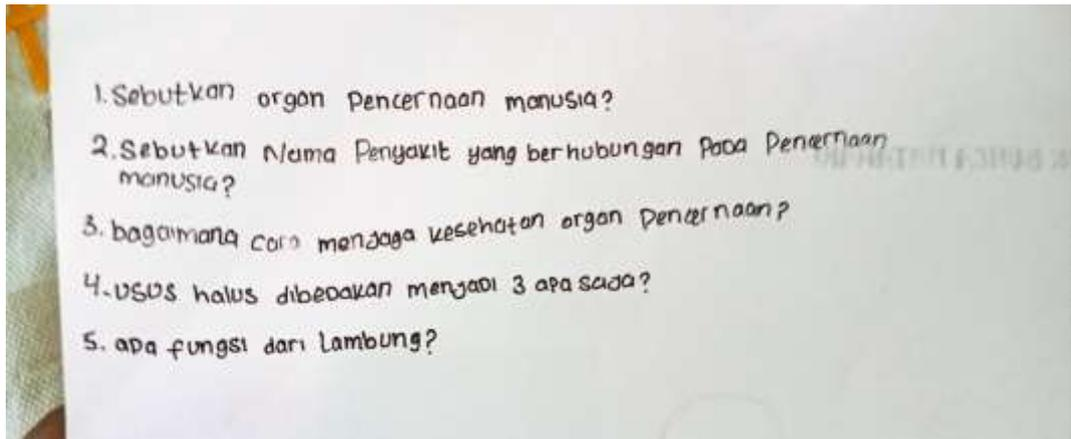 1. Sebutkan organ Pencernaan manusia?
2. Sebutkan Nama Penyakit yang berhubungan Pada Pencernaan
manusia?
3. bagaimana cara menjaga kesehatan organ Pencernaan?
4. USUS halus dibedakan menjadi 3 apa saja?
5. apa fungsi dari Lambung?